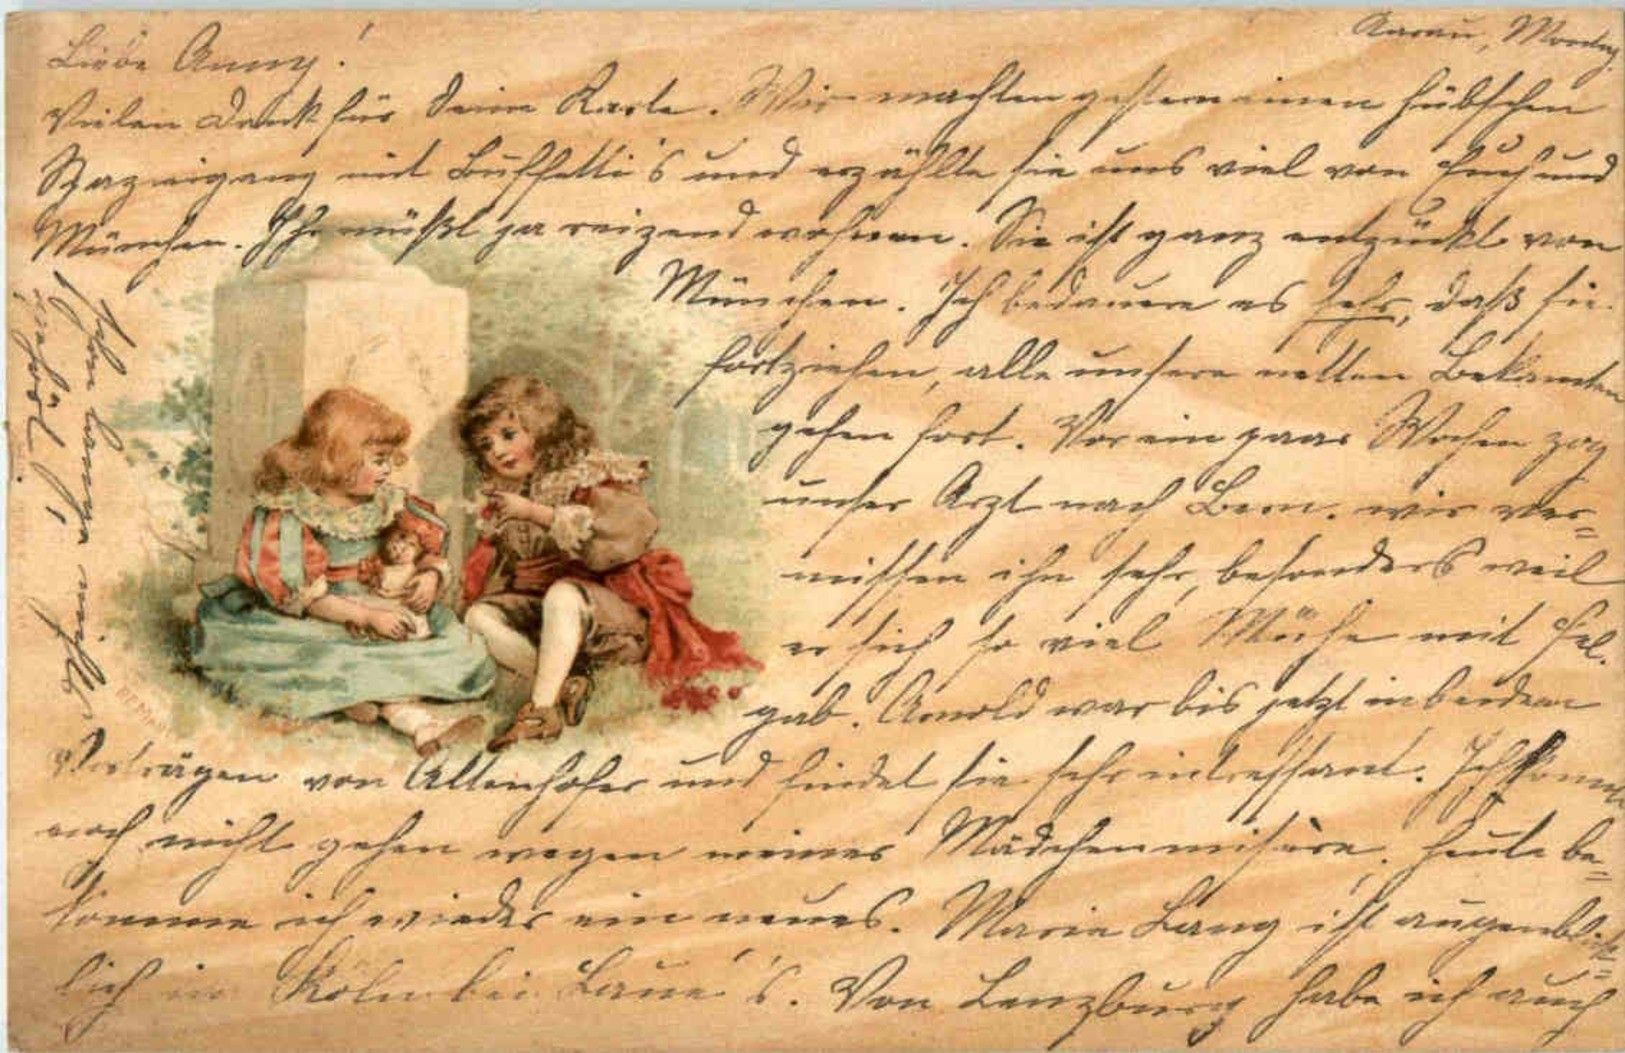 Aarau, Montag.
Liebe Anny!
Vielen Dank für Deine Karte. Wir machten gestern einen hübschen
Spaziergang mit Buffetti's und erzählte sie uns viel von Euch und
München. Ihr müßt ja reizend wohnen. Sie ist ganz entzückt von
München. Ich bedauere es sehr, daß sie
fortziehen, alle unsere netten Bekannten
gehen fort. Vor ein paar Wochen zog
unser Arzt nach Bern. wir ver=
missen ihn sehr, besonders weil
er sich so viel Mühe mit
gab. Arnold war bis jetzt in beiden
Vorträgen von Altenhofer und findet sie sehr intressant. Ich konnte
noch nicht gehen wegen meiner Mädchenmisère. Heute be=
komme ich wieder ein neues. Marie Lang ist augenblick=
lich in Köln bei Laué's. Von Lenzburg habe ich auch
schon lange nichts
gehört,